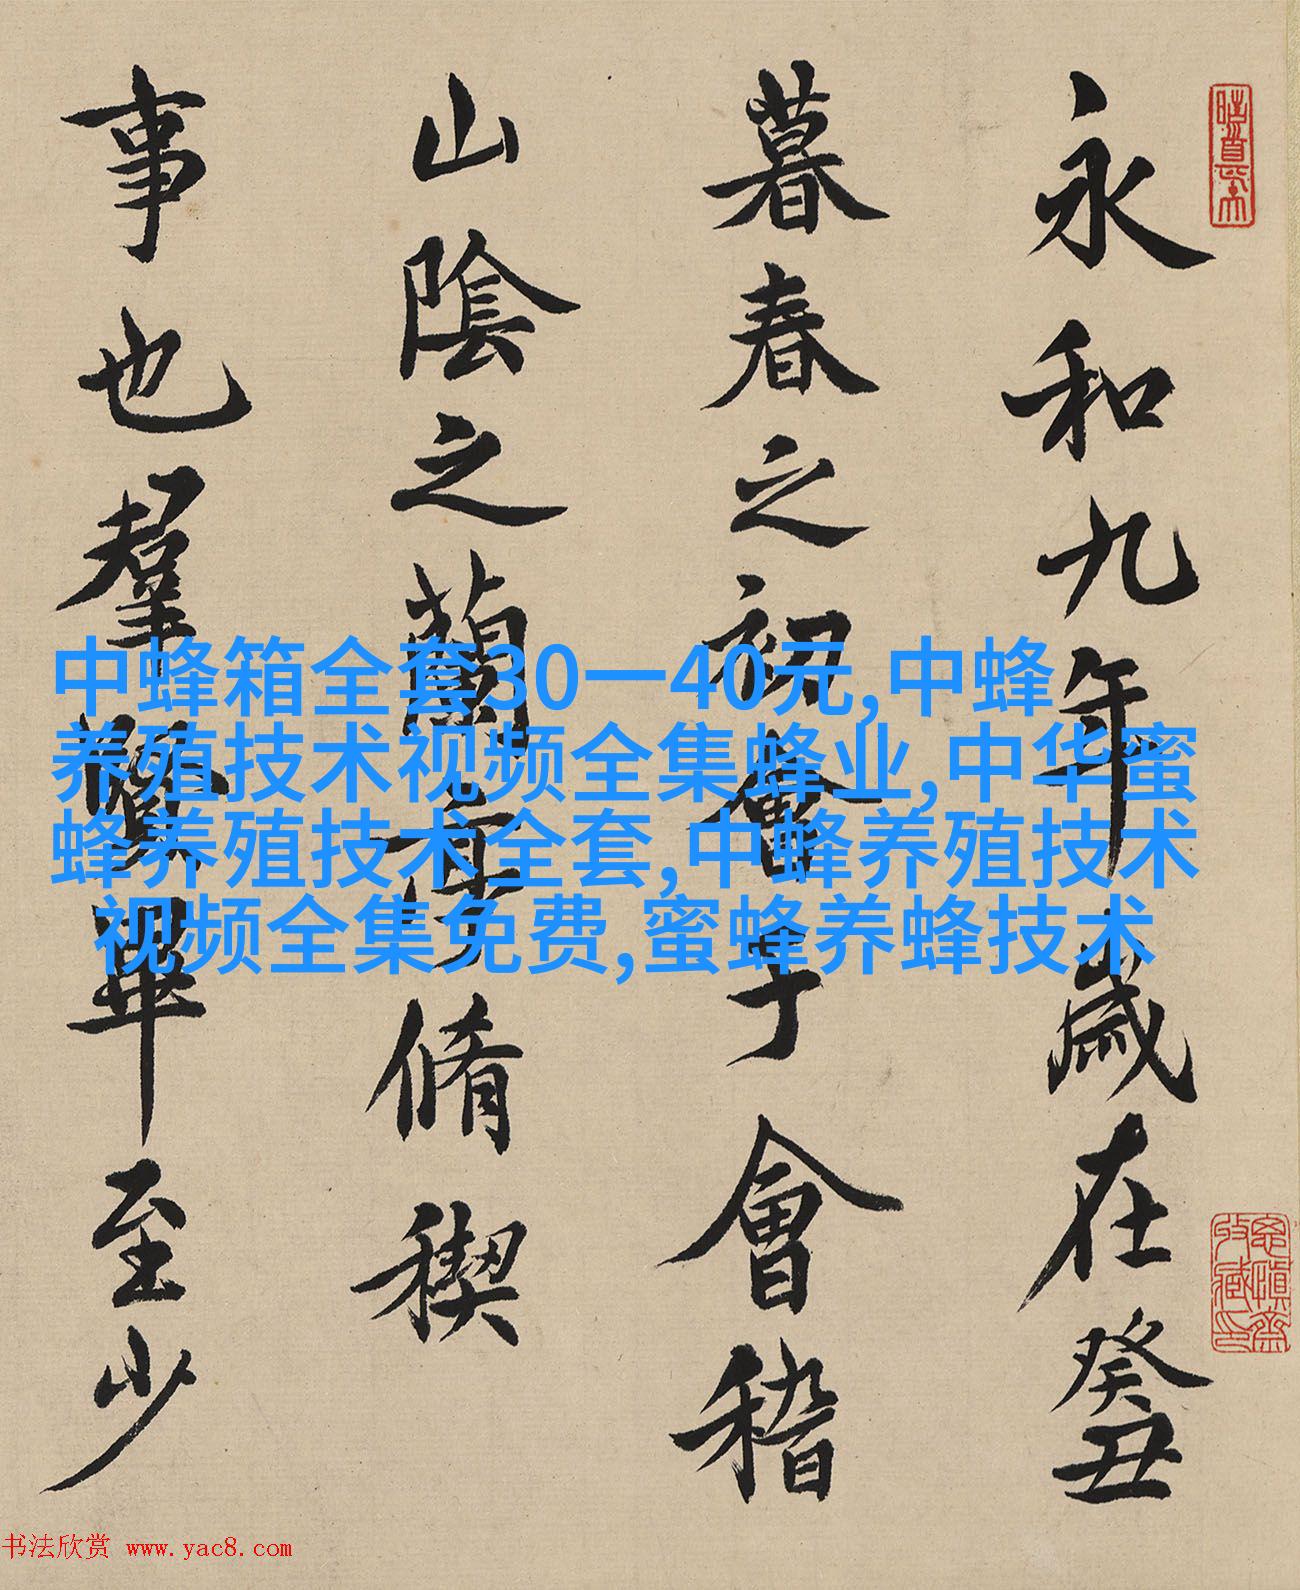 永和九年歲在癸丑
暮春之初會于會稽
山陰之蘭亭脩稧
事也羣賢畢至少
中蜂箱全套30一40元,中蜂
养殖技术视频全集蜂业,中华蜜
蜂养殖技术全套,中蜂养殖技术
视频全集免费,蜜蜂养蜂技术
书法欣赏 www.yac8.com